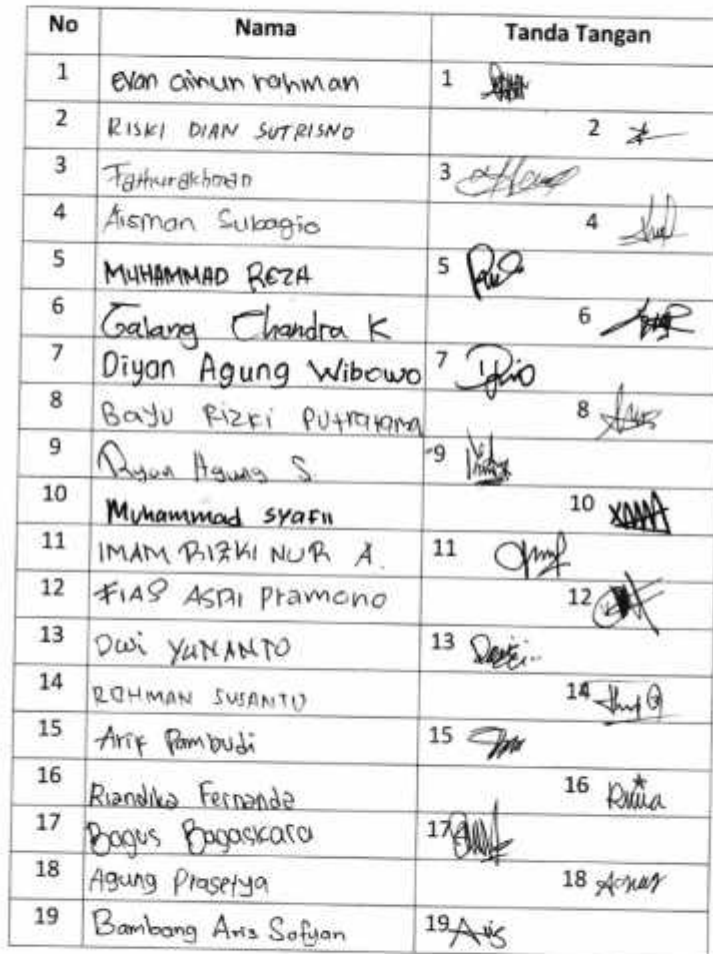 No Nama Tanda Tangan
1 evan ainun rahman 1
2 RISKI DIAN SUTRISNO 2
3 Fathurakhman 3
4 Aisman Subagio 4
5 MUHAMMAD REZA 5
6 Galang Chandra K 6
7 Diyan Agung Wibowo 7
8 Bayu Rizki Putratama 8
9 Ryan Agung S. 9
10 Muhammad syafii 10
11 IMAM RIZKI NUR A. 11
12 Pramono 12
13 Dwi YUNANTO 13
14 ROHMAN SUSANTO 14
15 Arif Pambudi 15
16 Riandika Fernanda 16
17 Bagus Bagaskara 17
18 Agung Prasetya 18
19 Bambang Aris Sofyan 19 Aris